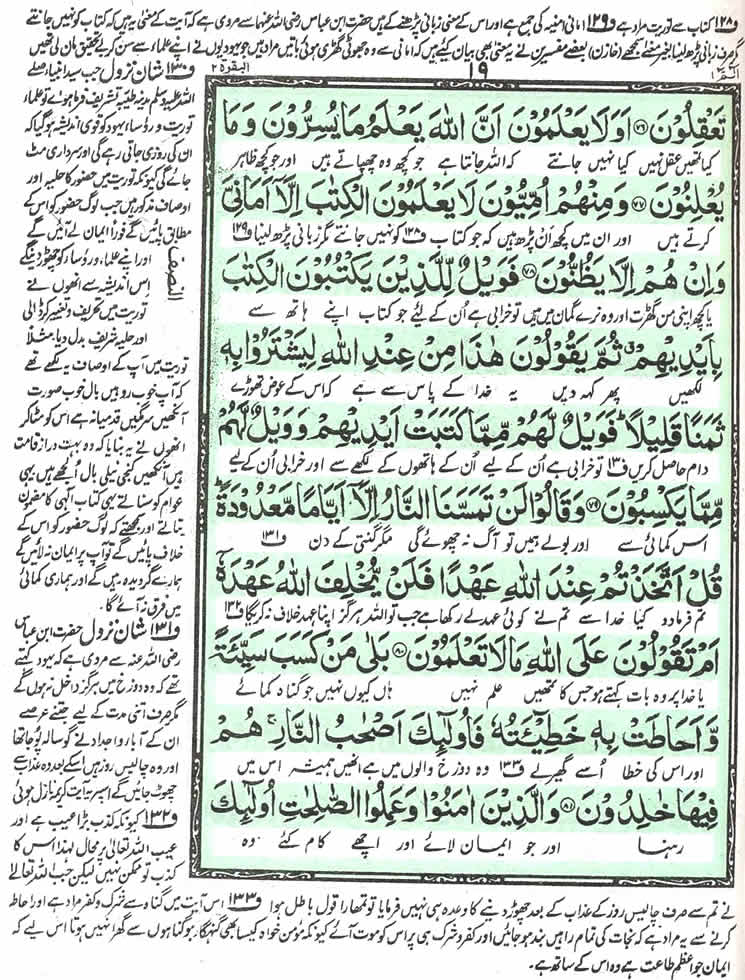 و۱۲۸ کتاب سے توریت مراد ہے و۱۲۹ امانی امنیہ کی جمع ہے اور اس کے معنی زبانی پڑھنے کے ہیں حضرت ابن عباس رضی اللہ عنہما سے مروی ہے کہ آیت کے معنی یہ ہیں کہ کتاب کو نہیں جانتے
مگر صرف زبانی پڑھ لینا بغیر معنی سمجھے (خازن) بعضے مفسرین نے یہ معنی بھی بیان کیئے ہیں کہ امانی سے وہ جھوٹی گھڑی ہوئی باتیں مراد ہیں جو یہودیوں نے اپنے علماء سے سن کر بے تحقیق مان لی تھیں
الٓمّٓ ۱
۱۹
البقرة ۲
تَعْقِلُوْنَ ۝۷۶ اَوَلَا یَعْلَمُوْنَ اَنَّ اللّٰهَ یَعْلَمُ مَا یُسِرُّوْنَ وَمَا
کیا تمہیں عقل نہیں کیا نہیں جانتے کہ اللہ جانتا ہے جو کچھ وہ چھپاتے ہیں اور جو کچھ ظاہر
یُعْلِنُوْنَ ۝۷۷ وَمِنْهُمْ اُمِّیُّوْنَ لَا یَعْلَمُوْنَ الْكِتٰبَ اِلَّاۤ اَمَانِیَّ
کرتے ہیں اور ان میں کچھ اَن پڑھ ہیں کہ جو کتاب و۱۲۸ کو نہیں جانتے مگر زبانی پڑھ لینا و۱۲۹
وَاِنْ هُمْ اِلَّا یَظُنُّوْنَ ۝۷۸ فَوَیْلٌ لِّلَّذِیْنَ یَكْتُبُوْنَ الْكِتٰبَ
یا کچھ اپنی من گھڑت اور وہ نرے گمان میں ہیں تو خرابی ہے اُن کے لیئے جو کتاب اپنے ہاتھ سے
بِاَیْدِیْهِمْ ۗ ثُمَّ یَقُوْلُوْنَ هٰذَا مِنْ عِنْدِ اللّٰهِ لِیَشْتَرُوْا بِهٖ
لکھیں پھر کہہ دیں یہ خدا کے پاس سے ہے کہ اس کے عوض تھوڑے
ثَمَنًا قَلِیْلًا ؕ فَوَیْلٌ لَّهُمْ مِّمَّا كَتَبَتْ اَیْدِیْهِمْ وَوَیْلٌ لَّهُمْ
دام حاصل کریں و۱۳۰ تو خرابی ہے اُن کے لیے اُن کے ہاتھوں کے لکھے سے اور خرابی اُن کے لیے
مِّمَّا یَكْسِبُوْنَ ۝۷۹ وَقَالُوْا لَنْ تَمَسَّنَا النَّارُ اِلَّاۤ اَیَّامًا مَّعْدُوْدَةً ؕ
اس کمائی سے اور بولے ہمیں تو آگ نہ چھوئے گی مگر گنتی کے دن و۱۳۱
قُلْ اَتَّخَذْتُمْ عِنْدَ اللّٰهِ عَهْدًا فَلَنْ یُّخْلِفَ اللّٰهُ عَهْدَهٗۤ
تم فرما دو کیا خدا سے تم نے کوئی عہد لے رکھا ہے جب تو اللہ ہرگز اپنا عہد خلاف نہ کرے گا و۱۳۲
اَمْ تَقُوْلُوْنَ عَلَی اللّٰهِ مَا لَا تَعْلَمُوْنَ ۝۸۰ بَلٰی مَنْ كَسَبَ سَیِّئَةً
یا خدا پر وہ بات کہتے ہو جس کا تمھیں علم نہیں ہاں کیوں نہیں جو گناہ کمائے
وَّاَحَاطَتْ بِهٖ خَطِیْٓـَٔتُهٗ فَاُولٰٓئِكَ اَصْحٰبُ النَّارِ ۚ هُمْ
اور اس کی خطا اُسے گھیر لے و۱۳۳ وہ دوزخ والوں میں ہے انھیں ہمیشہ اس میں
فِیْهَا خٰلِدُوْنَ ۝۸۱ وَالَّذِیْنَ اٰمَنُوْا وَعَمِلُوا الصّٰلِحٰتِ اُولٰٓئِكَ
رہنا اور جو ایمان لائے اور اچھے کام کئے وہ
و۱۳۰ شان نزول جب سید انبیاء صلے
اللہ علیہ وسلم مدینہ طیبہ تشریف فرما ہوئے تو علماء
توریت و رؤساء یہود کو قوی اندیشہ ہوگیا کہ
ان کی روزی جاتی رہے گی اور سرداری مٹ
جائے گی کیونکہ توریت میں حضور کا حلیہ اور
اوصاف مذکور ہیں جب لوگ حضور کو اس کے
مطابق پائیں گے فوراً ایمان لے آئیں گے
اور اپنے علماء و رؤساء کو چھوڑ دینگے
اس اندیشہ سے انھوں نے
توریت میں تحریف و تغییر کر ڈالی
اور حلیہ شریف بدل دیا۔ مثلاً
توریت میں آپ کے اوصاف یہ لکھے تھے
کہ آپ خوب رو ہیں بال خوب صورت
آنکھیں سرمگیں قد میانہ ہے اس کو مٹا کر
انھوں نے یہ بنایا کہ وہ بہت دراز قامت
ہیں آنکھیں کنجی نیلی بال اُلجھے ہیں یہی
عوام کو سناتے یہی کتاب الٰہی کا مضمون
بتاتے اور سمجھتے کہ لوگ حضور کو اس کے
خلاف پائیں گے تو آپ پر ایمان نہ لائیں گے
ہمارے گرویدہ رہیں گے اور ہماری کمائی
میں فرق نہ آئے گا۔
و۱۳۱ شان نزول حضرت ابن عباس
رضی اللہ عنہ سے مروی ہے کہ یہود کہتے
تھے کہ وہ دوزخ میں ہرگز داخل نہ ہوں گے
مگر صرف اتنی مدت کے لیے جتنے عرصے
ان کے آباء و اجداد نے گوسالہ پوجا تھا
اور وہ چالیس روز ہیں اسکے بعد وہ عذاب سے
چھوٹ جائیں گے اس پر یہ آیت کریمہ نازل ہوئی
و۱۳۲ کیونکہ کذب بڑا عیب ہے اور
عیب اللہ تعالیٰ پر محال لہذا اس کا
کذب تو ممکن نہیں لیکن جب اللہ تعالےٰ
النصف
نے تم سے صرف چالیس روز کے عذاب کے بعد چھوڑ دینے کا وعدہ ہی نہیں فرمایا تو تمہارا قول باطل ہوا و۱۳۳ اس آیت میں گناہ سے شرک و کفر مراد ہے اور احاطہ
کرنے سے یہ مراد ہے کہ نجات کی تمام راہیں بند ہو جائیں اور کفر و شرک ہی پر اس کو موت آئے کیونکہ مؤمن خواہ کیسا بھی گنہگار ہو گناہوں سے گھرا نہیں ہوتا اس لیے کہ
ایمان جو اعظم طاعت ہے وہ اس کے ساتھ ہے۔